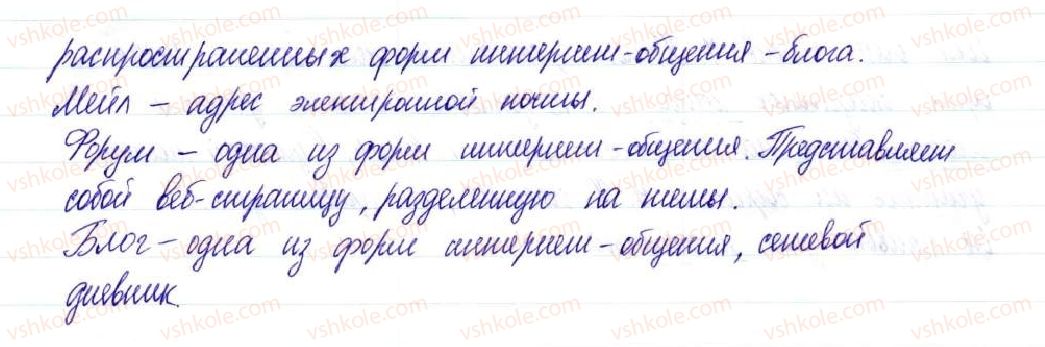 распространенных форм интернет-общения - блога.
Мейл - адрес электронной почты.
Форум - одна из форм интернет-общения. Представляет
собой веб-страницу, разделенную на темы.
Блог - одна из форм интернет-общения, сетевой
дневник.